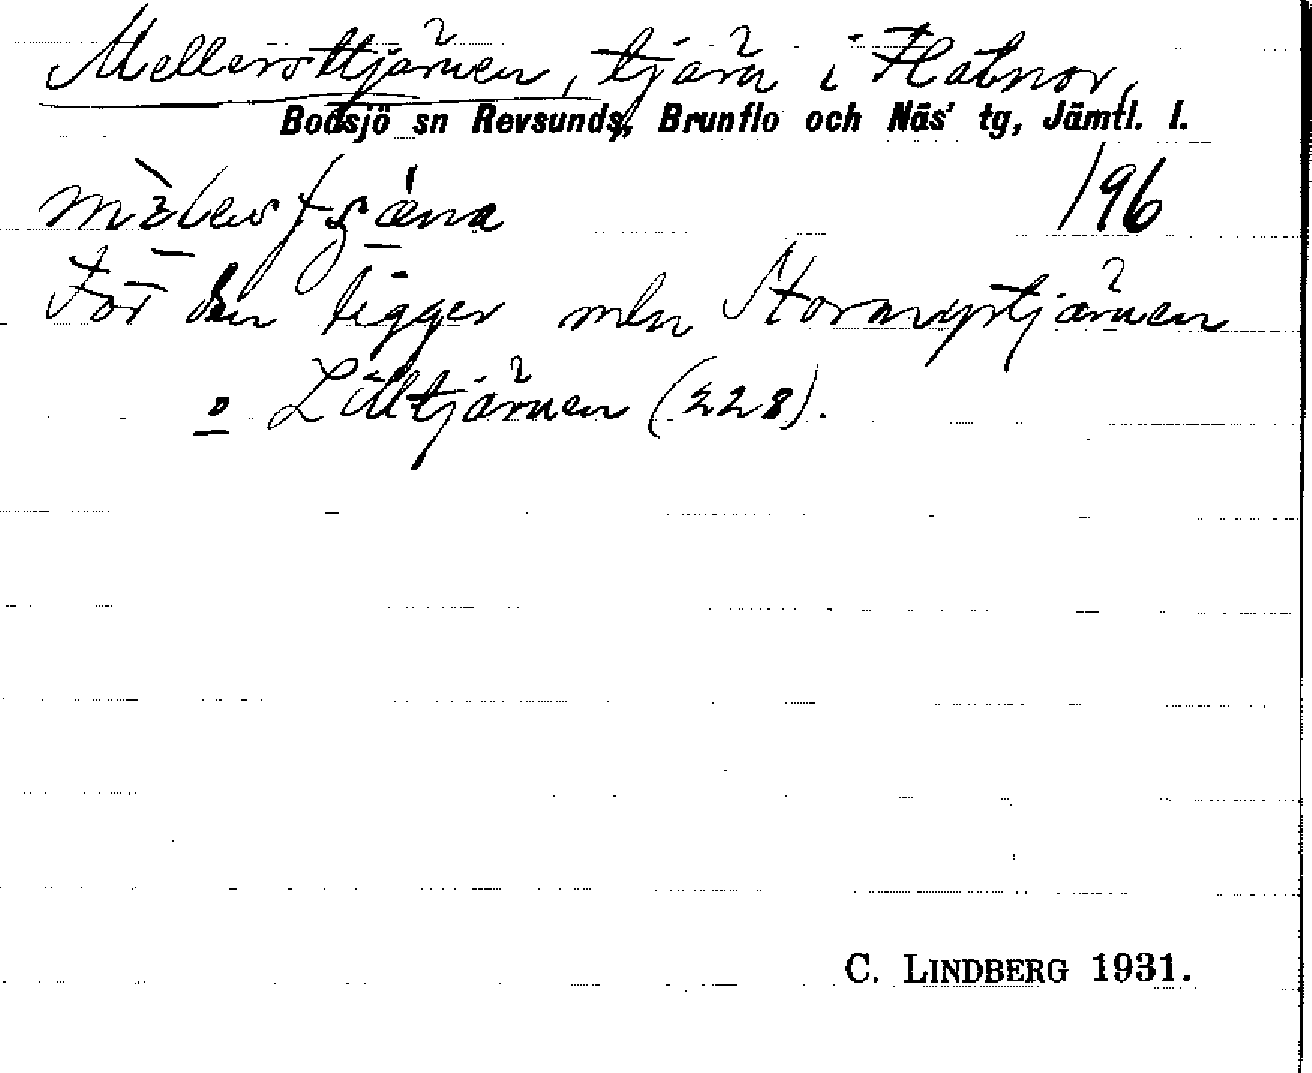 Mellersttjärnen, tjärn i Hatnor,
Bodsjö sn Revsunds, Brunflo och Näs' tg, Jämtl. l.
196
För den ligger mln Stormyrtjärnen
o Lilltjärnen (228).
C. LINDBERG 1931.